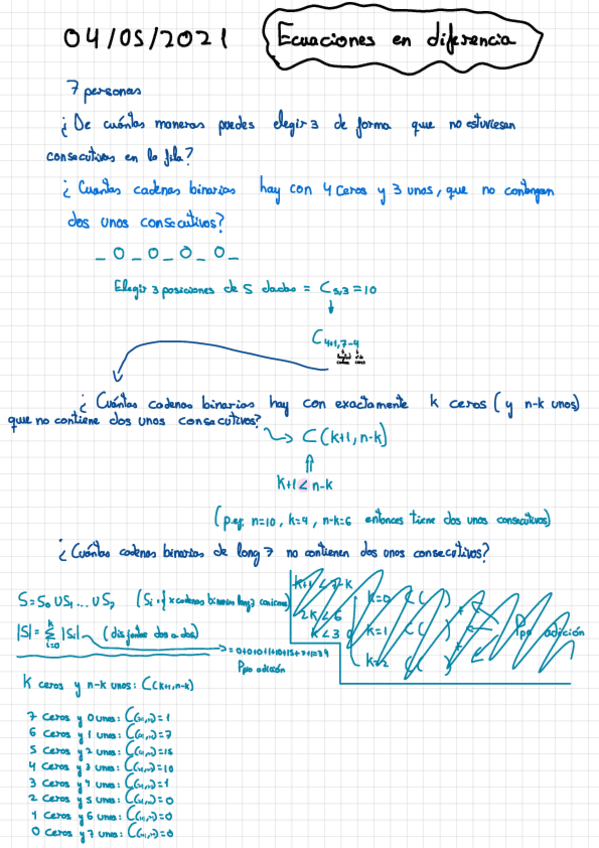 04/05/2021
Ecuaciones en diferencia
7 personas
¿De cuántas maneras puedes elegir 3 de forma que no estuviesen
consecutivas en la fila?
¿Cuantas cadenas binarias hay con 4 ceros y 3 unos, que no contengan
dos unos consecutivos?
_ 0 _ 0 _ 0 _ 0 _
Elegir 3 posiciones de 5 dadas = C5,3 = 10
↓
C4+1,7-4
¿Cuántas cadenas binarias hay con exactamente k ceros (y n-k unos)
que no contiene dos unos consecutivos?
↪ C(k+1, n-k)
⇑
k+1 < n-k
(p.ej. n=10, k=4, n-k=6 entonces tiene dos unos consecutivos)
¿Cuántas cadenas binarias de long 7 no contienen dos unos consecutivos?
S = S₀ ∪ S₁ ... ∪ S₇
k+1 < 7-k
2k < 6
k < 3
k=0
k=1
k=2
Ppo adición
|S| = Σ |Si| (disjuntos dos a dos)
Ppo adición
k ceros y n-k unos: C(k+1,n-k)
7 ceros y 0 unos: =1
6 ceros y 1 unos: =7
5 ceros y 2 unos: =15
4 ceros y 3 unos: =10
3 ceros y 4 unos: =1
2 ceros y 5 unos: =0
1 ceros y 6 unos: =0
0 ceros y 7 unos: =0